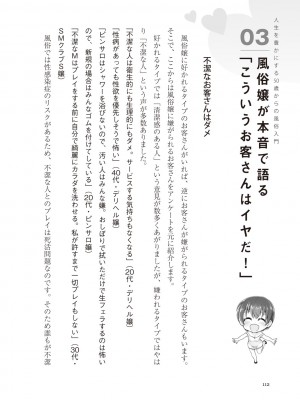 人生を豊かにする50歳からの風俗入門
03
風俗嬢が本音で語る
「こういうお客さんはイヤだ！」
風俗嬢に好かれるタイプのお客さんがいれば、逆にお客さんが嫌がるタイプのお客さんもいます。
そこで、ここからは風俗嬢に嫌がられるお客さんをアンケートを元に紹介します。
不潔なお客さんはダメ
好かれるタイプでは「清潔感のある人」という意見が数多くあがりましたが、嫌われるタイプではやは
り「不潔な人」という声が多数ありました。
「不潔な人は衛生的にも生理的にもダメ。サービスする気持ちもなくなる」（20代・デリヘル嬢）
「性病があっても性欲を優先しそうで怖い」（40代・デリヘル嬢）
「ピンサロはシャワーを浴びないので、汚い人はみんな嫌。おしぼりで拭いただけで生フェラするのは怖い
ので、新規の場合はみんなゴムを付けてしている」（20代・ピンサロ嬢）
「不潔なMはプレイをする前に自分で綺麗にカラダを洗わせる。私が許すまで一切プレイもしない」（30代・
SMクラブS嬢）
風俗では性感染症のリスクがあるため、不潔な人とのプレイは死活問題なのです。そのため誰もが不潔
112